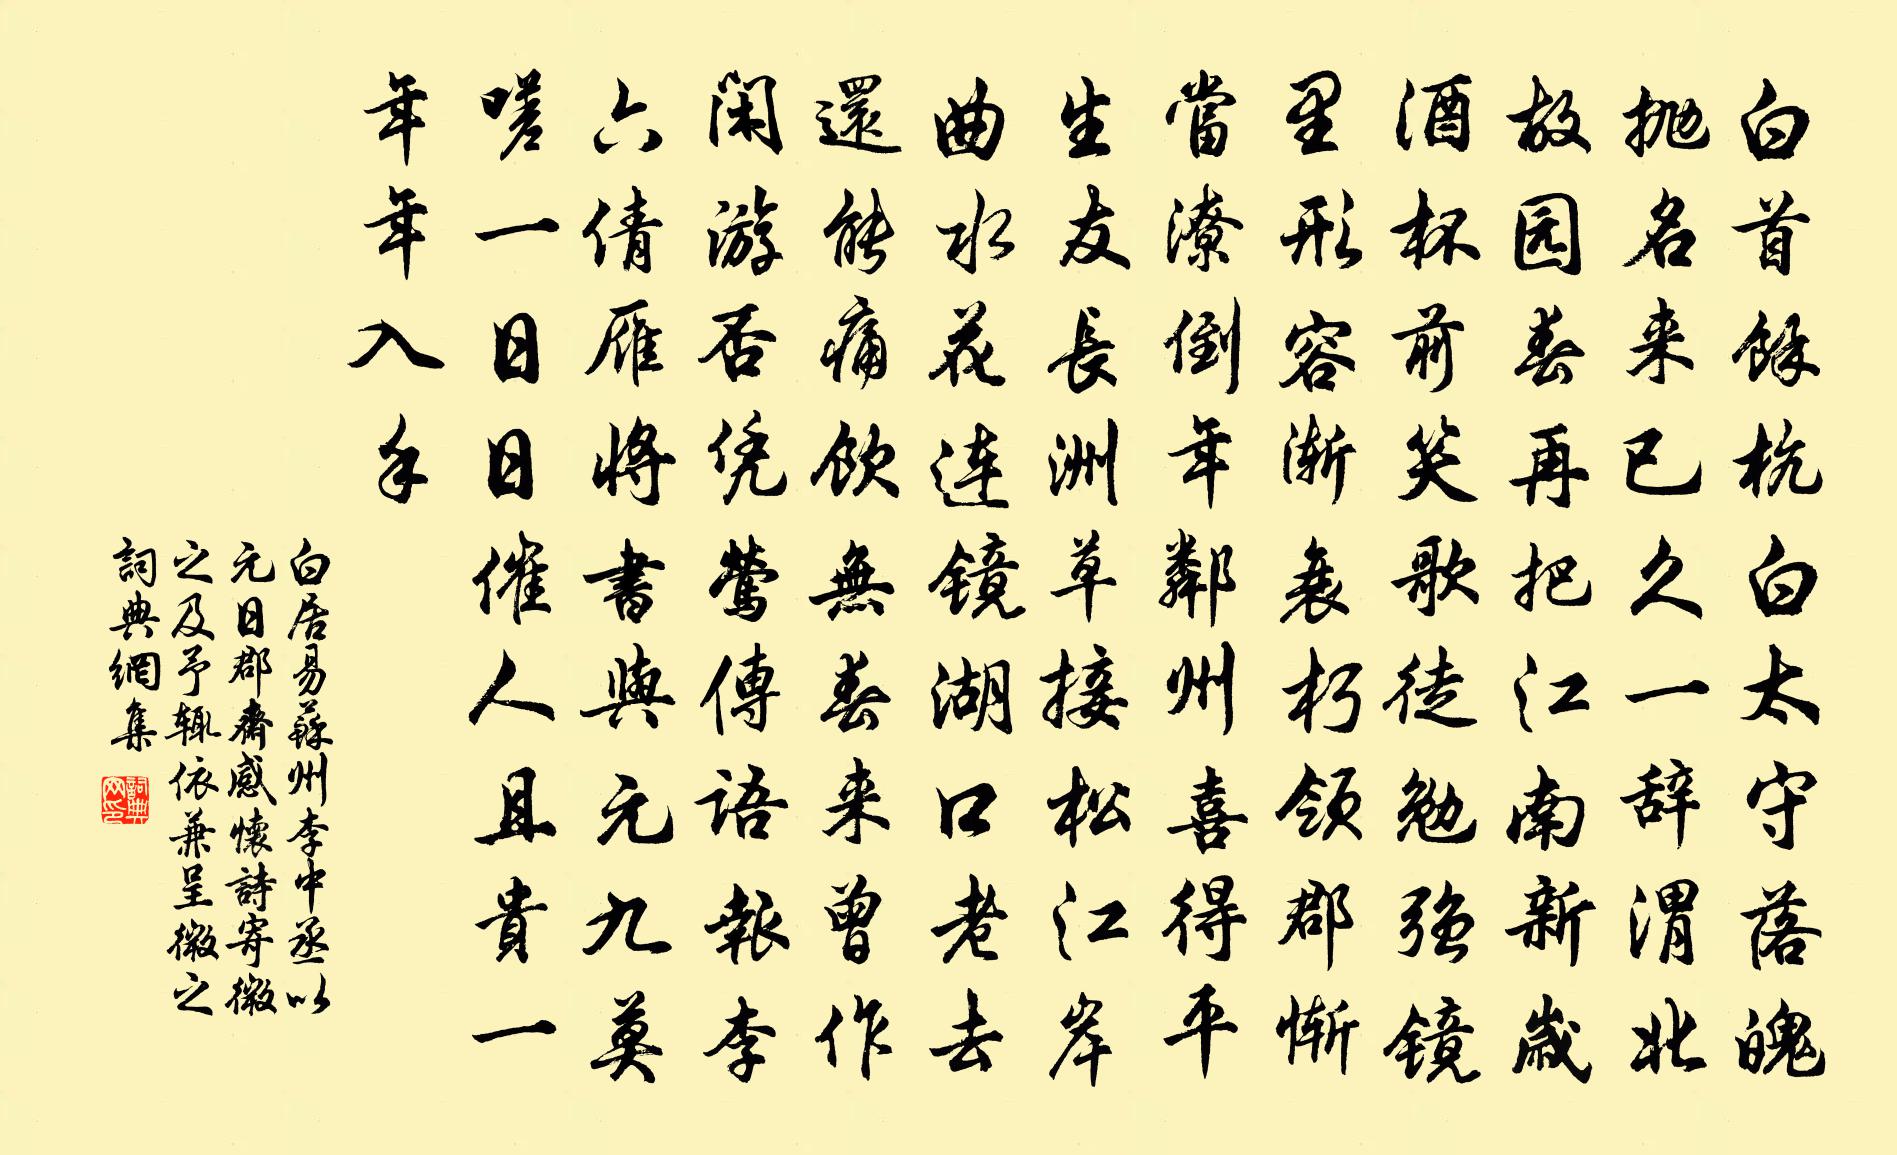 白首餘杭白太守落魄
抛名来已久一辞渭北
故园春再把江南新歲
酒杯前笑歌徒勉强镜
里形容渐衰朽领郡惭
當潦倒年鄰州喜得平
生友長洲草接松江岸
曲水花连镜湖口老去
還能痛飲無春来曾作
闲游否凭莺傳语報李
六倩雁将書與元九莫
嗟一日日催人且貴一
年年入手
白居易蘇州李中丞以
元日郡齋感懷詩寄微
之及予輒依兼呈微之
詞典網集
詞典